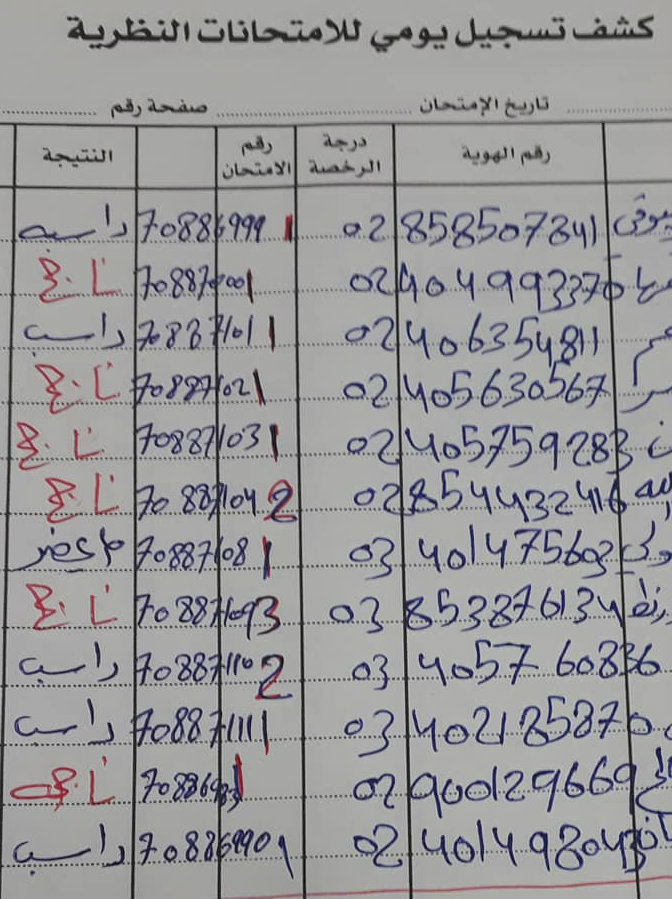 كشف تسجيل يومي للامتحانات النظرية
تاريخ الإمتحان صفحة رقم
رقم الهوية درجة الرخصة رقم الامتحان النتيجة
858507841 02 1 70886999 راسب
404993370 02 1 7088700 ناجح
406354811 02 1 7088710 راسب
405630567 02 1 70887102 ناجح
405759283 02 1 70887103 ناجح
854432416 02 2 70887104 ناجح
401475603 03 1 70887108 م حضر
853876134 03 3 70887109 ناجح
405760836 03 2 70887110 راسب
402185870 03 1 70887111 راسب
900129669 02 1 ناجح
401498043 02 1 70886990 راسب